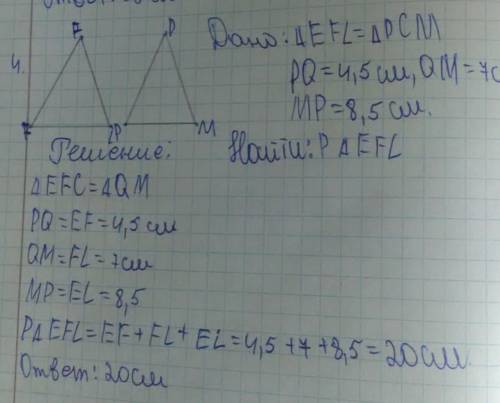 4.
E
P
Дано: ΔEFL = ΔPCM
PQ = 4,5 см, QM = 7с
MP = 8,5 см.
F
L
P
M
Решение:
Найти: P Δ EFL
ΔEFC = ΔQM
PQ = EF = 4,5 см
QM = FL = 7см
MP = EL = 8,5
PΔEFL = EF + FL + EL = 4,5 + 7 + 8,5 = 20см.
Ответ: 20см